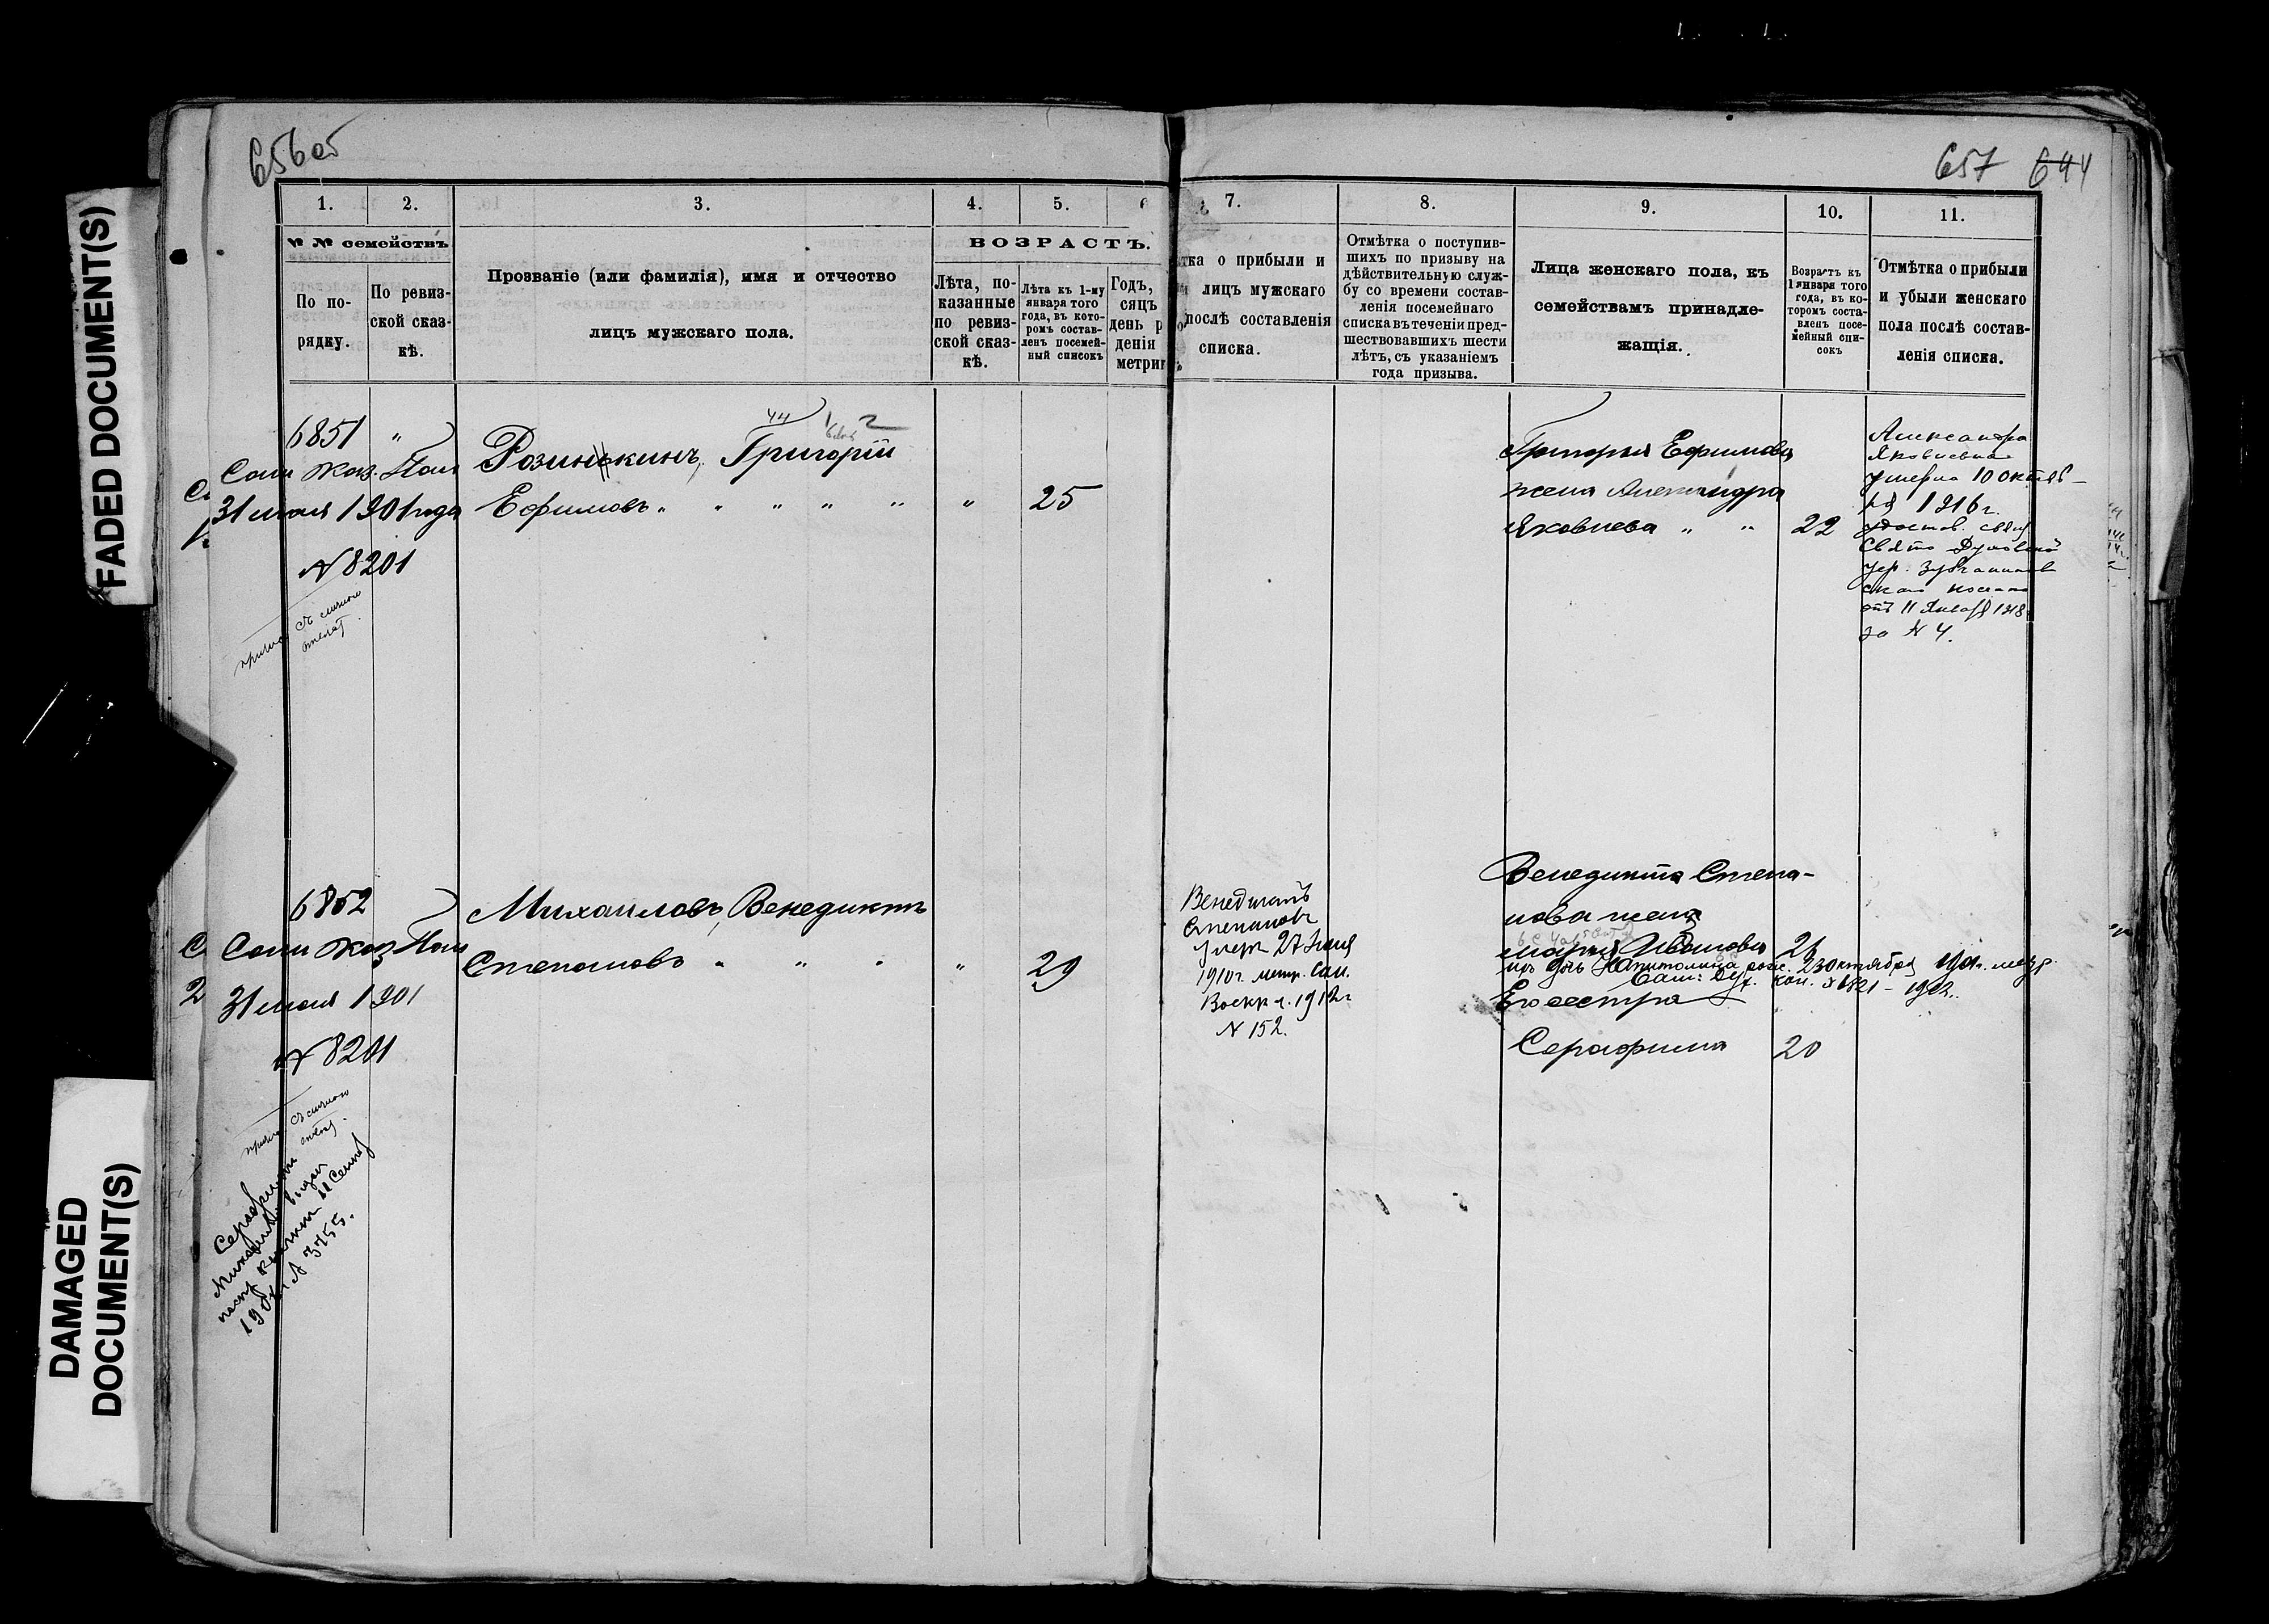 FADED DOCUMENT(S)
DAMAGED
DOCUMENT(S)
656 об
657 644
1. 2. 3. 4. 5. 6
7. 8. 9. 10. 11.
№ № семействъ
По по-
рядку.
По ревиз-
ской сказ-
кѣ.
Прозваніе (или фамилія), имя и отчество
лицъ мужскаго пола.
ВОЗРАСТЪ.
Лѣта, по-
казанные
по ревиз-
ской сказ-
кѣ.
Лѣта къ 1-му
января того
года, въ кото-
ромъ состав-
ленъ посемей-
ный списокъ
Годъ,
сяцъ
день р
денія
метри
тка о прибыли и
лицъ мужскаго
послѣ составленія
списка.
Отмѣтка о поступив-
шихъ по призыву на
дѣйствительную служ-
бу со времени состав-
ленія посемейнаго
списка въ теченіи пред-
шествовавшихъ шести
лѣтъ, съ указаніемъ
года призыва.
Лица женскаго пола, къ
семействамъ принадле-
жащія.
Возрастъ къ
1 января того
года, въ ко-
торомъ соста-
вленъ посе-
мейный спи-
сокъ
Отмѣтка о прибыли
и убыли женскаго
пола послѣ состав-
ленія списка.
6851 "
Сам. Каз. Пал
31 мая 1901 года
N 8201
44
Розинькинъ, Григорій
Ефимовъ " " " " "
" 25
Григорья Ефимова
жена Александра
Яковлева " " 22
Александра
Яковлевна
умерла 10 октяб-
ря 1916 г.
Свято-Духовской
цер.
отъ 11 Января 1918
за N 4.
6852
Сам. Каз. Пал
31 мая 1901
N 8201
Михайловъ, Венедиктъ
Степановъ " " "
" 29
Венедиктъ
Степановъ
умер 27 Іюня
1910 г. метр. Сам.
Воскр. ц. 1912 г
N 152.
Венедикта Степа-
нова жена
Марья Иванова 26
ихъ дочь Капитолина род. 23 октября 1901 г. метр.
Сам. Дух. Кон. N 6821 - 1902 г.
Его сестра
Серафима 20
Серафиме
Михайлов. выдан
11 Сентяб
N 3755.